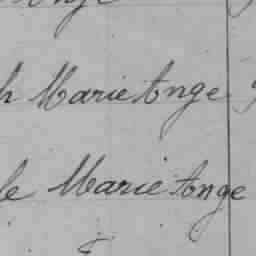 h Marie Ange
le Marie Ange